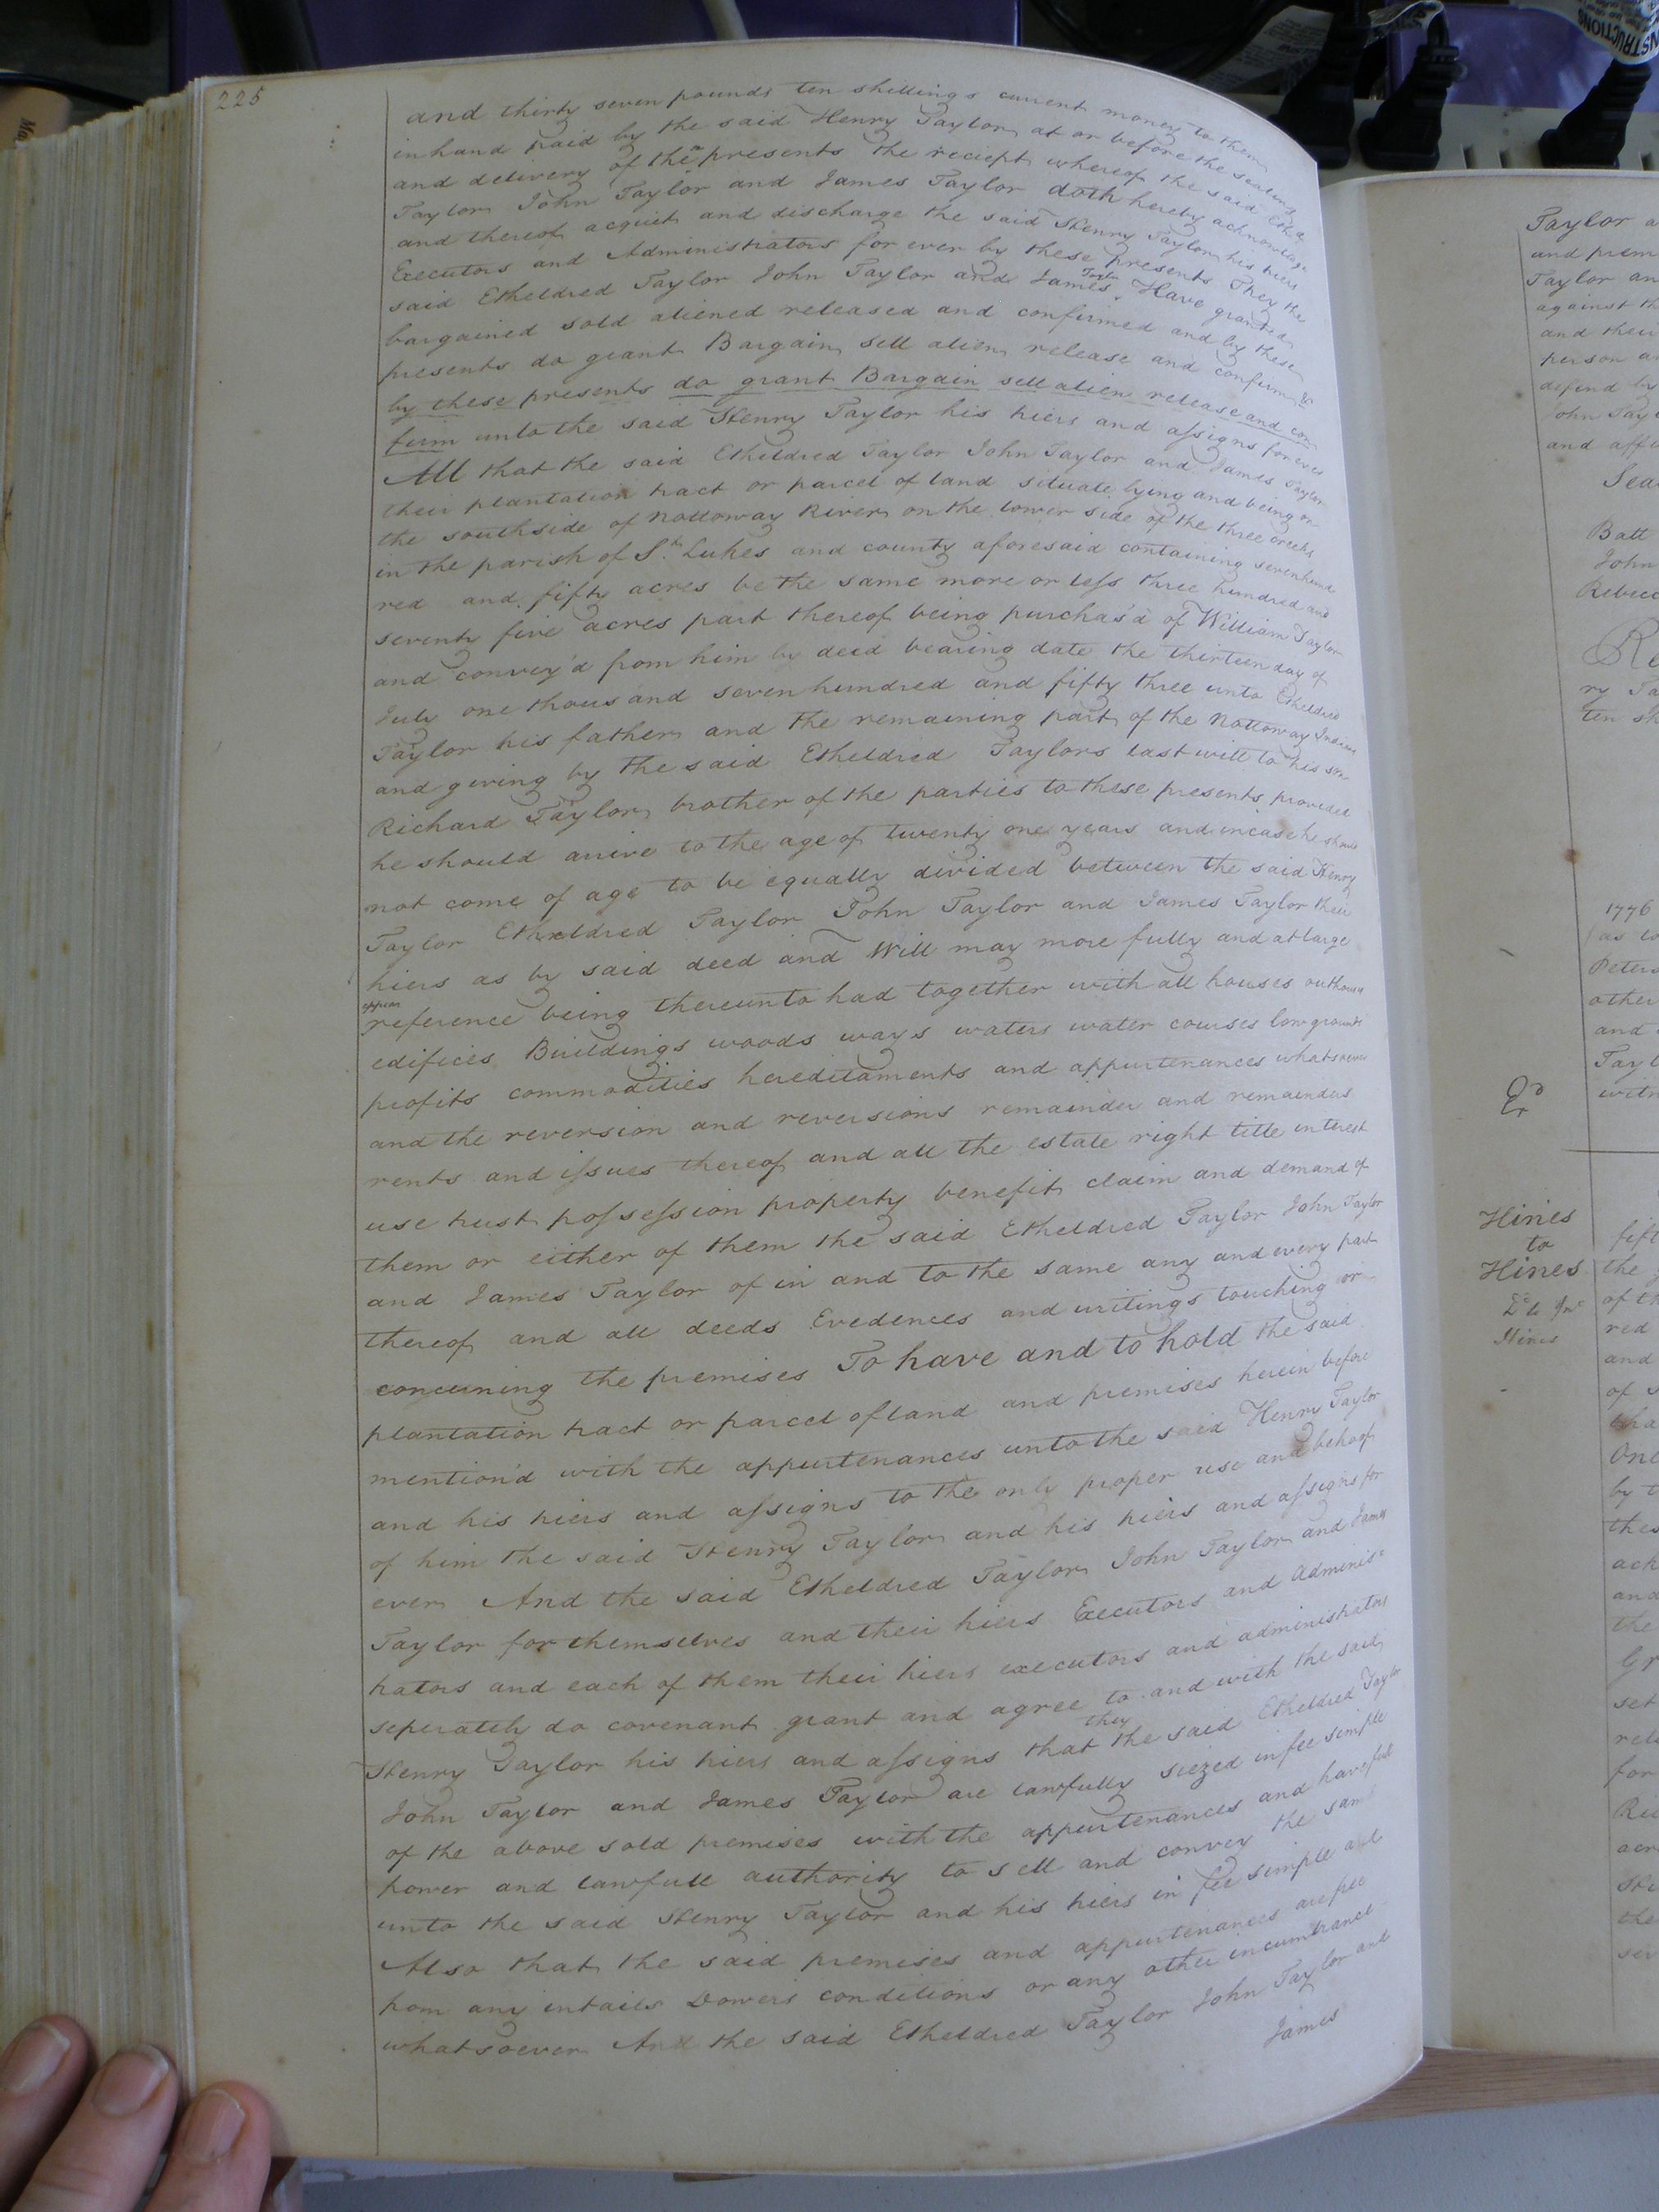 225
and thirty seven pounds ten shillings current money to them
in hand paid by the said Henry Taylor at or before the sealing
and delivery of these presents the reciept whereof the said Ethd
Taylor John Taylor and James Taylor doth hereby acknowlage
and thereof acquiet and discharge the said Henry Taylor his hiers
Executors and Administrators for ever by these presents They the
said Etheldred Taylor John Taylor and James Taylor Have granted
bargained sold aliened released and confirmed and by these
presents do grant Bargain sell alien release and confirm &
by these presents do grant Bargain sell alien release and con
firm unto the said Henry Taylor his hiers and assigns forever
All that the said Etheldred Taylor John Taylor and James Taylor
their plantation tract or parcel of land situate lying and being on
the southside of Nottoway River on the lower side of the three creeks
in the parish of St. Lukes and county aforesaid containing sevenhund
red and fifty acres be the same more or less three hundred and
seventy five acres part thereof being purchas'd of William Taylor
and convey'd from him by deed bearing date the thirteen day of
July one thousand sevenhundred and fifty three unto Etheldred
Taylor his father and the remaining part of the Nottoway Indians
and giving by the said Etheldred Taylors last will to his son
Richard Taylor brother of the parties to these presents provided
he should arrive to the age of twenty one years and incase he should
not come of age to be equally divided between the said Henry
Taylor Etheldred Taylor John Taylor and James Taylor their
hiers as by said deed and Will may more fully and at large
appear
reference being thereunto had together with all houses outhouses
edifices Buildings woods ways waters water courses lowgrounds
profits commodities hereditaments and appurtenances whatsoever
and the reversion and reversions remainder and remainders
rents and issues thereof and all the estate right title interest
use trust possession property benefit claim and demand of
them or either of them the said Etheldred Taylor John Taylor
and James Taylor of in and to the same any and every part
thereof and all deeds Evedences and writings touching or
concerning the premises To have and to hold the said
plantation tract or parcel of land and premises herein before
mention'd with the appurtenances unto the said Henry Taylor
and his hiers and assigns to the only proper use and behoof
of him the said Henry Taylor and his hiers and assigns for
ever And the said Etheldred Taylor John Taylor and James
Taylor for themselves and their hiers Executors and Adminis
trators and each of them their hiers executors and administrators
seperately do covenant grant and agree to and with the said
Henry Taylor his hiers and assigns that they the said Etheldred Taylor
John Taylor and James Taylor are lawfully siezed in fee simple
of the above sold premises with the appurtenances and have full
power and lawfull authority to sell and convey the same
unto the said Henry Taylor and his hiers in fee simple and
Also that the said premises and appurtenances are free
from any intails Dowers conditions or any other incumbrance
whatsoever And the said Etheldred Taylor John Taylor and
James
Taylor a
and prem
Taylor an
against th
and their
person an
defend by
John Tayl
and affi
Seal
Batt
John
Rebec
Re
ry Ta
ten sh
1776
as
Peters
other
and
Tayl
witn
Hines
to
Hines
fift
the
of th
red
Hines
and
of
tha
One
by t
thes
ack
and
the
Gr
set
rele
for
Ric
acr
the